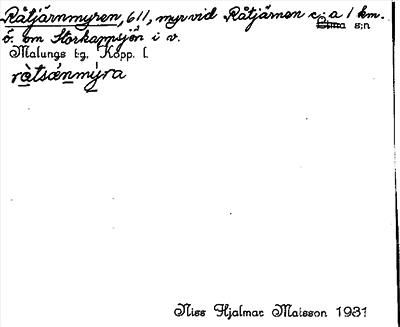 Råtjärnmyren, 611, myr vid Råtjärnen c:a 1 km.
ö. om Storkappsjön i v.
Malungs tg. Kopp. l.
Lima s:n
ràtsǽnmýra
Niss Hjalmar Matsson 1931